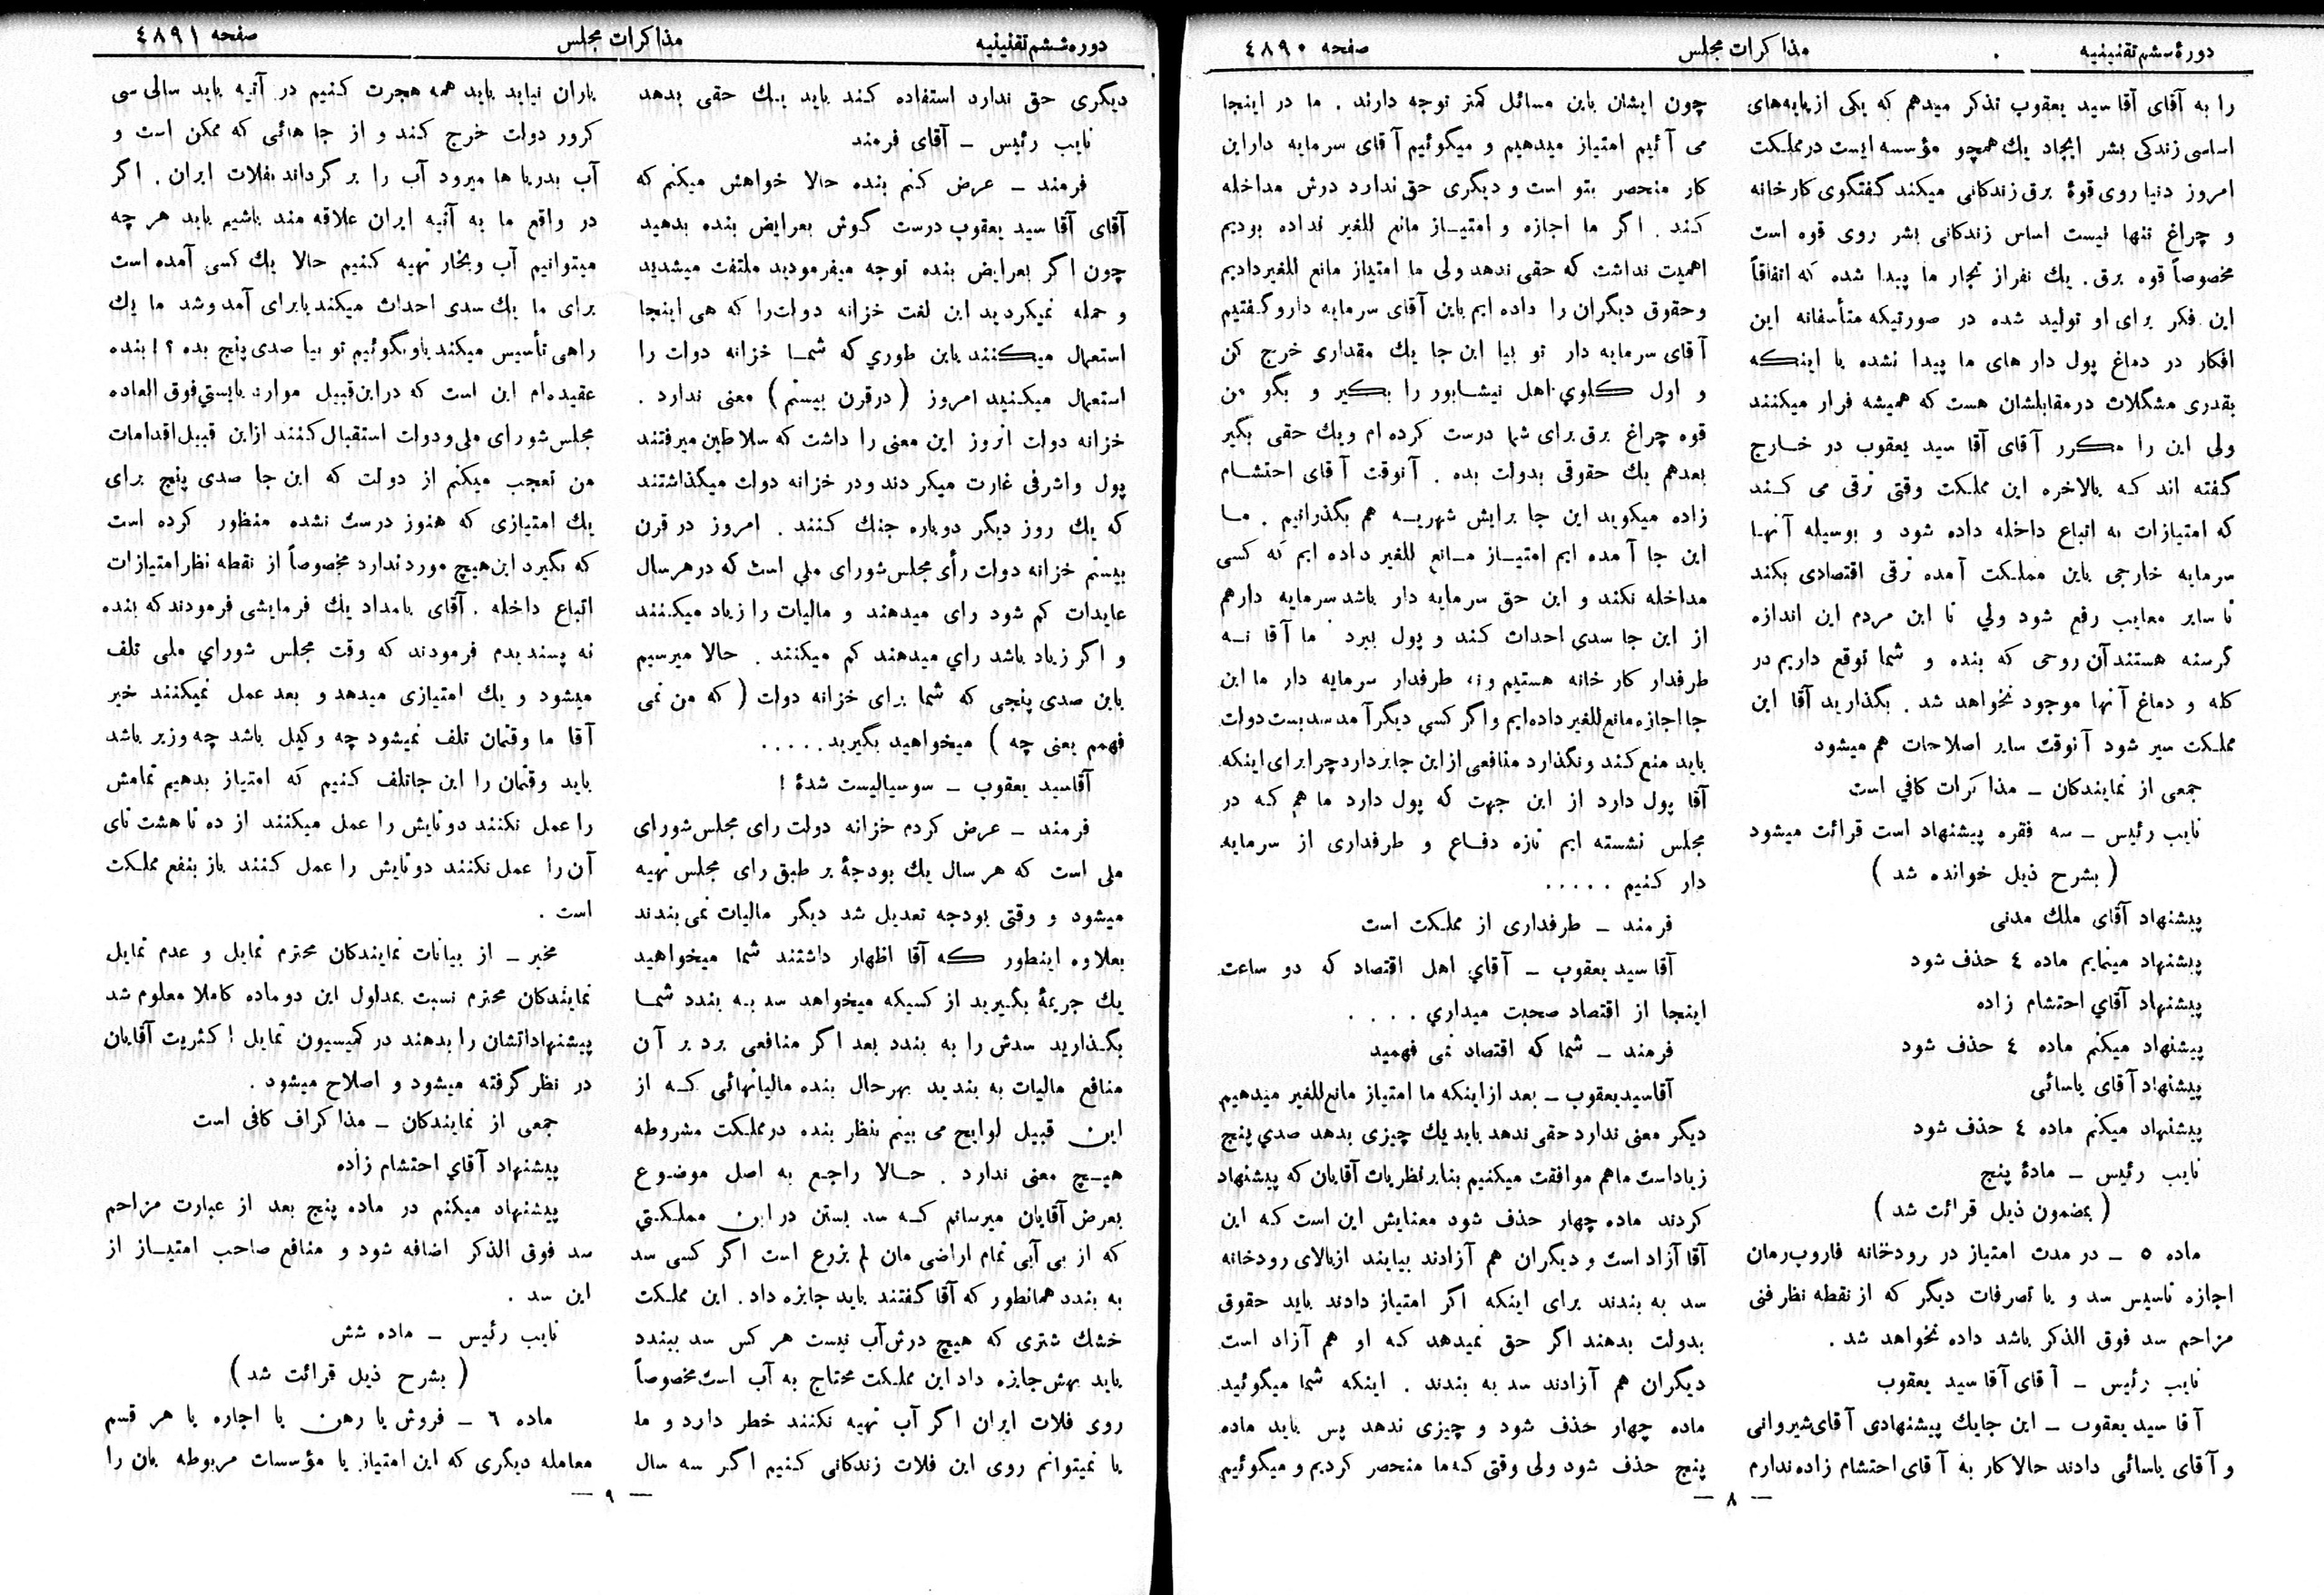 دورهٔ ششم تقنینیه
مذاکرات مجلس
صفحه ٤٨٩٠
را به آقای آقا سید یعقوب تذکر میدهم که یکی از پایه‌های
اساسی زندگی بشر ایجاد یك همچو مؤسسه ایست در مملکت
امروز دنیا روی قوهٔ برق زندگانی میکند گفتگوی کارخانه
و چراغ تنها نیست اساس زندگانی بشر روی قوه است
مخصوصاً قوه برق. یك نفر از تجار ما پیدا شده که اتفاقاً
این فکر برای او تولید شده در صورتیکه متأسفانه این
افکار در دماغ پول دار های ما پیدا نشده یا اینکه
بقدری مشگلات در مقابلشان هست که همیشه فرار میکنند
ولی این را مکرر آقای آقا سید یعقوب در خارج
گفته اند که بالاخره این مملکت وقتی ترقی می کند
که امتیازات به اتباع داخله داده شود و بوسیله آنها
سرمایه خارجی باین مملکت آمده ترقی اقتصادی بکند
تا سایر معایب رفع شود ولي تا این مردم این اندازه
گرسنه هستند آن روحی که بنده و شما توقع داریم در
کله و دماغ آنها موجود نخواهد شد. بگذارید آقا این
مملکت سیر شود آنوقت سایر اصلاحات هم میشود
جمعی از نمایندگان ـ مذاکرات کافي است
نایب رئیس ـ سه فقره پیشنهاد است قرائت میشود
( بشرح ذیل خوانده شد )
پیشنهاد آقای ملك مدنی
پیشنهاد مینمایم ماده ٤ حذف شود
پیشنهاد آقاي احتشام زاده
پیشنهاد میکنم ماده ٤ حذف شود
پیشنهاد آقای یاسائی
پیشنهاد میکنم ماده ٤ حذف شود
نایب رئیس ـ مادهٔ پنج
( بمضمون ذیل قرائت شد )
ماده ٥ ـ در مدت امتیاز در رودخانه فاروب‌رمان
اجازه تاسیس سد و یا تصرفات دیگر که از نقطه نظر فنی
مزاحم سد فوق الذکر باشد داده نخواهد شد .
نایب رئیس ـ آقای آقا سید یعقوب
آقا سید یعقوب ـ این جا یك پیشنهادی آقای شیروانی
و آقای یاسائی دادند حالا کار به آقای احتشام زاده ندارم
چون ایشان باین مسائل کمتر توجه دارند . ما در اینجا
می آئیم امتیاز میدهیم و میگوئیم آقای سرمایه دار این
کار منحصر بتو است و دیگری حق ندارد درش مداخله
کند . اگر ما اجازه و امتیاز مانع للغیر نداده بودیم
اهمیت نداشت که حقی ندهد ولی ما امتیاز مانع للغیر دادیم
و حقوق دیگران را داده ایم باین آقای سرمایه دار و گفتیم
آقای سرمایه دار تو بیا این جا یك مقداری خرج کن
و اول گلوي اهل نیشابور را بگیر و بگو من
قوه چراغ برق برای شما درست کرده ام و یك حقی بگیر
بعد هم یك حقوقی بدولت بده . آنوقت آقای احتشام
زاده میگوید این جا برایش شهریه هم بگذرانیم . ما
این جا آمده ایم امتیاز مانع للغیر داده ایم که کسی
مداخله نکند و این حق سرمایه دار باشد سرمایه دار هم
از این جا سدی احداث کند و پول ببرد ما آقا نه
طرفدار کار خانه هستیم و نه طرفدار سرمایه دار ما این
جا اجازه مانع للغیر داده‌ایم و اگر کسی دیگر آمد سد بست دولت
باید منع کند و نگذارد منافعی از این جا بردارد چرا برای اینکه
آقا پول دارد از این جهت که پول دارد ما هم که در
مجلس نشسته ایم تازه دفاع و طرفداری از سرمایه
دار کنیم .....
فرمند ـ طرفداری از مملکت است
آقا سید یعقوب ـ آقاي اهل اقتصاد که دو ساعت
اینجا از اقتصاد صحبت میداري ....
فرمند ـ شما که اقتصاد نمی فهمید
آقاسید یعقوب ـ بعد از اینکه ما امتیاز مانع للغیر میدهیم
دیگر معنی ندارد حقی ندهد باید یك چیزی بدهد صدي پنج
زیاد است ما هم موافقت میکنیم بنا بر نظریات آقایان که پیشنهاد
کردند ماده چهار حذف شود معنایش این است که این
آقا آزاد است و دیگران هم آزادند بیایند از بالای رودخانه
سد به بندند برای اینکه اگر امتیاز دادند باید حقوق
بدولت بدهند اگر حق نمیدهد که او هم آزاد است
دیگران هم آزادند سد به بندند . اینکه شما میگوئید
ماده چهار حذف شود و چیزی ندهد پس باید ماده
پنج حذف شود ولی وقتی که ما منحصر کردیم و میگوئیم
ـ ٨ ـ
دوره ششم تقنینیه
مذاکرات مجلس
صفحه ٤٨٩١
دیگری حق ندارد استفاده کند باید یك حقی بدهد
نایب رئیس ـ آقای فرمند
فرمند ـ عرض کنم بنده حالا خواهش میکنم که
آقای آقا سید یعقوب درست گوش بعرایض بنده بدهید
چون اگر بعرایض بنده توجه میفرمودید ملتفت میشدید
و حمله نمیکردید این لغت خزانه دولت را که هی اینجا
استعمال میکنند باین طوري که شما خزانه دولت را
استعمال میکنید امروز ( در قرن بیستم ) معنی ندارد .
خزانه دولت آنروز این معنی را داشت که سلاطین میرفتند
پول و اشرفی غارت میکردند و در خزانه دولت میگذاشتند
که یك روز دیگر دوباره جنك کنند . امروز در قرن
بیستم خزانه دولت رأی مجلس شورای ملي است که در هر سال
عایدات کم شود رای میدهند و مالیات را زیاد میکنند
و اگر زیاد باشد راي میدهند کم میکنند . حالا میرسیم
باین صدی پنجی که شما برای خزانه دولت ( که من نمی
فهمم یعنی چه ) میخواهید بگیرید .....
آقاسید یعقوب ـ سوسیالیست شدهٔ !
فرمند ـ عرض کردم خزانه دولت رای مجلس شورای
ملی است که هر سال یك بودجهٔ بر طبق رای مجلس تهیه
میشود و وقتی بودجه تعدیل شد دیگر مالیات نمی بندند
بعلاوه اینطور که آقا اظهار داشتند شما میخواهید
یك جریمهٔ بگیرید از کسیکه میخواهد سد به بندد شما
بگذارید سدش را به بندد بعد اگر منافعی برد بر آن
منافع مالیات به بندید بهرحال بنده مالیاتهائی که از
این قبیل لوایح می بینم بنظر بنده در مملکت مشروطه
هیچ معنی ندارد . حالا راجع به اصل موضوع
بعرض آقایان میرسانم که سد بستن در این مملکتي
که از بی آبی تمام اراضی مان لم یزرع است اگر کسی سد
به بندد همانطور که آقا گفتند باید جایزه داد. این مملکت
خشك شتری که هیچ درش آب نیست هر کس سد ببندد
باید بهش جایزه داد این مملکت محتاج به آب است مخصوصاً
روی فلات ایران اگر آب تهیه نکنند خطر دارد و ما
یا نمیتوانم روی این فلات زندگانی کنیم اگر سه سال
باران نیاید باید همه هجرت کنیم در آتیه باید سالی سی
کرور دولت خرج کند و از جا هائی که ممکن است و
آب بدریا ها میرود آب را بر گرداند بفلات ایران . اگر
در واقع ما به آتیه ایران علاقه مند باشیم باید هر چه
میتوانیم آب و بخار تهیه کنیم حالا یك کسی آمده است
برای ما یك سدی احداث میکند یا برای آمد و شد ما یك
راهی تأسیس میکند باو بگوئیم تو بیا صدی پنج بده ؟! بنده
عقیده‌ام این است که در این قبیل موارد بایستي فوق العاده
مجلس شورای ملی و دولت استقبال کنند از این قبیل اقدامات
من تعجب میکنم از دولت که این جا صدی پنج برای
یك امتیازی که هنوز درست نشده منظور کرده است
که بگیرد این هیچ مورد ندارد مخصوصاً از نقطه نظر امتیازات
اتباع داخله . آقای بامداد یك فرمایشی فرمودند که بنده
نه پسندیدم فرمودند که وقت مجلس شوراي ملی تلف
میشود و یك امتیازی میدهد و بعد عمل نمیکنند خیر
آقا ما وقتمان تلف نمیشود چه وکیل باشد چه وزیر باشد
باید وقتمان را این جا تلف کنیم که امتیاز بدهیم تمامش
را عمل نکنند دو تایش را عمل میکنند از ده تا هشت تای
آن را عمل نکنند دو تایش را عمل کنند باز بنفع مملکت
است .
مخبر ـ از بیانات نمایندگان محترم تمایل و عدم تمایل
نمایندگان محترم نسبت بمداول این دو ماده کاملا معلوم شد
پیشنهاداتشان را بدهند در کمیسیون تمایل اکثریت آقایان
در نظر گرفته میشود و اصلاح میشود .
جمعی از نمایندگان ـ مذاکراف کافی است
پیشنهاد آقاي احتشام زاده
پیشنهاد میکنم در ماده پنج بعد از عبارت مزاحم
سد فوق الذکر اضافه شود و منافع صاحب امتیاز از
این سد .
نایب رئیس ـ ماده شش
( بشرح ذیل قرائت شد )
ماده ٦ ـ فروش یا رهن یا اجاره یا هر قسم
معامله دیگری که این امتیاز یا مؤسسات مربوطه بان را
ـ ٩ ـ